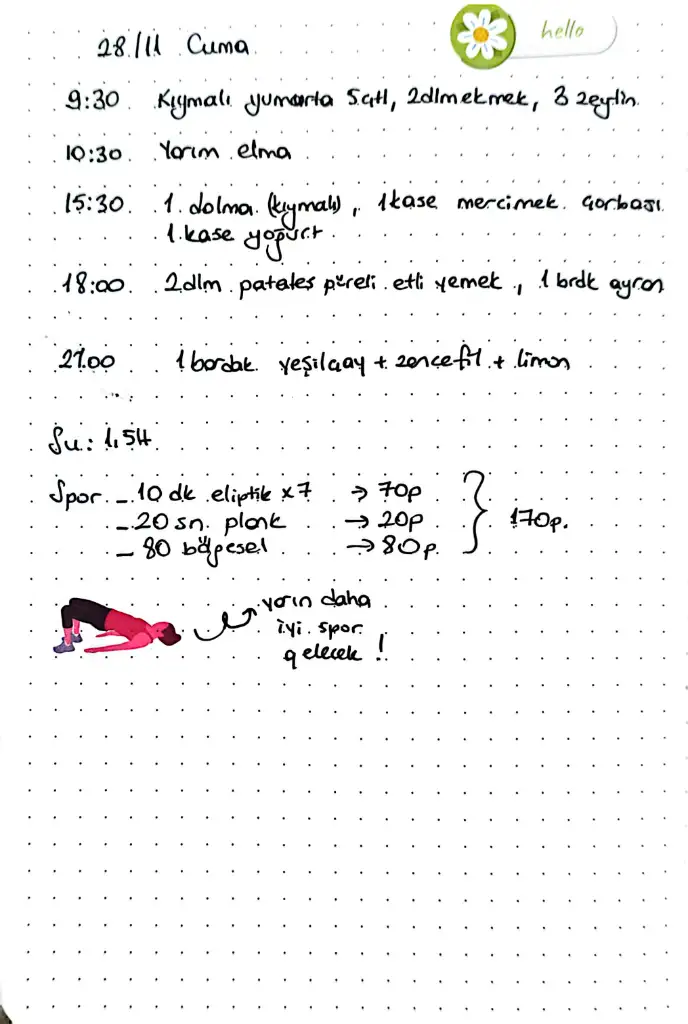 28/11 Cuma
hello
9:30 Kıymalı yumurta 5çtl, 2dlm ekmek, 3 zeytin
10:30 Yarım elma
15:30 1 dolma (kıymalı), 1 kase mercimek çorbası
1 kase yoğurt
18:00 2dlm patates püreli etli yemek, 1 brdk ayran
21.00 1 bardak yeşilçay + zencefil + limon
Su: 1,5lt
Spor - 10 dk eliptik x7 → 70p
- 20 sn. plank → 20p
- 80 bölgesel → 80p.
170p.
yarın daha
iyi spor
gelecek!